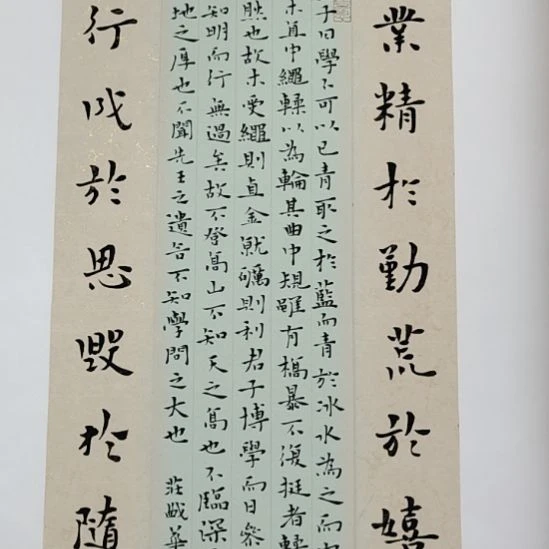 業精於勤荒於嬉
子曰學不可以已青取之於藍而青於冰水為之而
木直中繩輮以為輪其曲中規雖有槁暴不復挺者輮
然也故木受繩則直金就礪則利君子博學而日參
知明而行無過矣故不登高山不知天之高也不臨深
地之厚也不聞先王之遺言不知學問之大也 莊
行成於思毀於隨